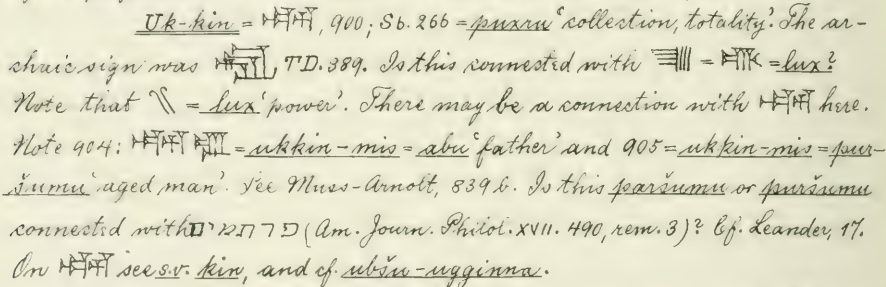 Uk-kin = , 900; Sb. 266 = puxru 'collection, totality'. The ar-
chaic sign was , TD. 389. Is this connected with = = lux?
Note that = lux 'power'. There may be a connection with here.
Note 904: = ukkin-mis = abu 'father' and 905 = ukkin-mis = pur-
šumu 'aged man'. See Muss-Arnolt, 839 b. Is this paršumu or puršumu
connected with פרתמים (Am. Journ. Philol. XVII. 490, rem. 3)? Cf. Leander, 17.
On see s.v. kin, and cf. ubšu-ugginna.